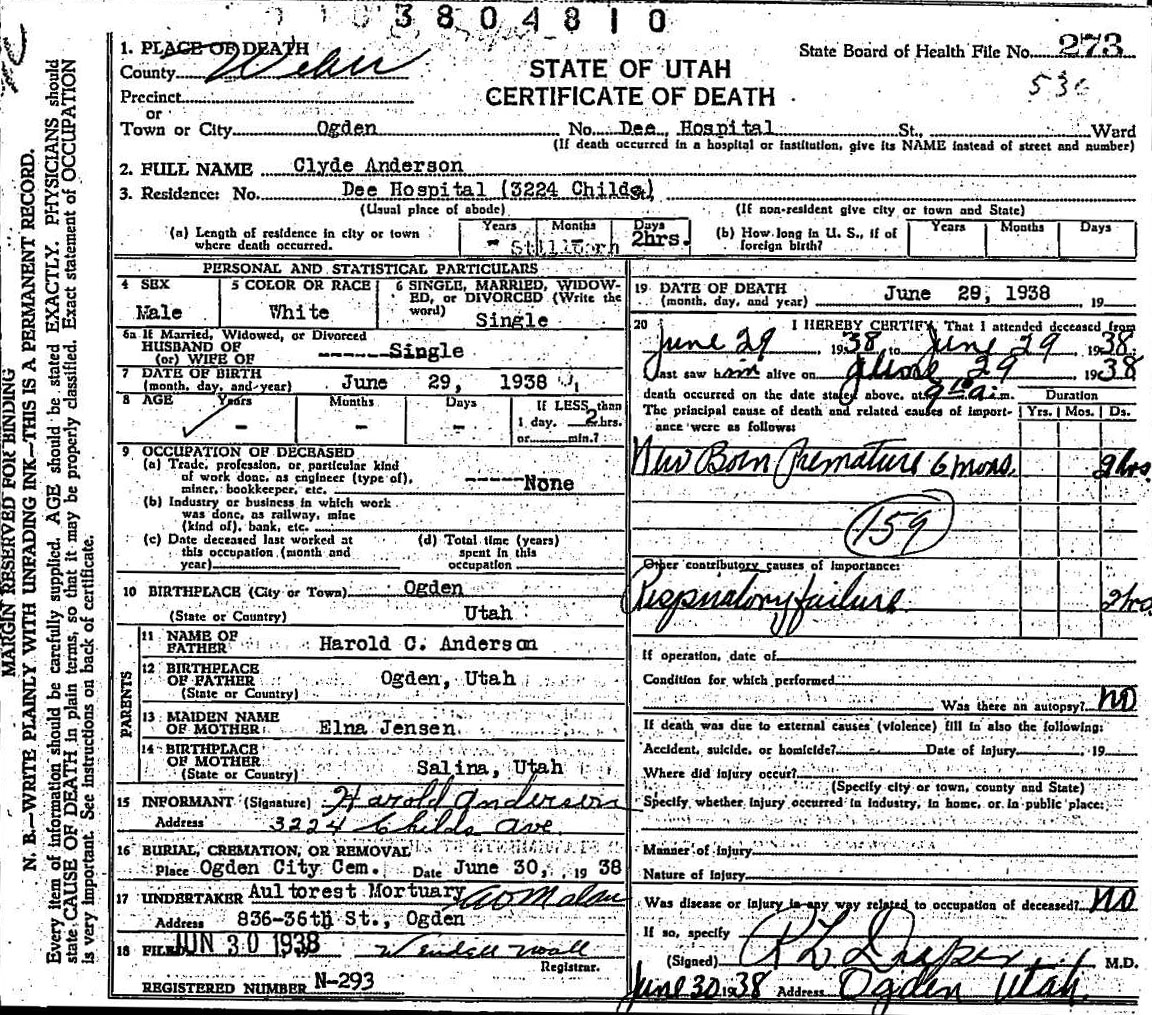 3804810
1. PLACE OF DEATH
County Weber
Precinct
or
Town or City Ogden No. Dee, Hospital St., Ward
(If death occurred in a hospital or institution, give its NAME instead of street and number)
State Board of Health File No. 273
STATE OF UTAH
CERTIFICATE OF DEATH
2. FULL NAME Clyde Anderson
3. Residence: No. Dee Hospital (3224 Childs,)
(Usual place of abode) (If non-resident give city or town and State)
(a) Length of residence in city or town where death occurred. Years Months Days
- Stillborn 2hrs.
(b) How long in U. S., if of foreign birth? Years Months Days
PERSONAL AND STATISTICAL PARTICULARS
4 SEX
Male
5 COLOR OR RACE
White
6 SINGLE, MARRIED, WIDOW-
ED, or DIVORCED (Write the
word)
Single
6a If Married, Widowed, or Divorced
HUSBAND OF
(or) WIFE OF ------Single
7 DATE OF BIRTH
(month, day, and year) June 29, 1938
8 AGE Years Months Days If LESS than
- - - 1 day. 2 hrs.
or min.?
9 OCCUPATION OF DECEASED
(a) Trade, profession, or particular kind
of work done, as engineer (type of),
miner, bookkeeper, etc. -----None
(b) Industry or business in which work
was done, as railway, mine
(kind of), bank, etc.
(c) Date deceased last worked at
this occupation (month and
year)
(d) Total time (years)
spent in this
occupation
10 BIRTHPLACE (City or Town) Ogden
(State or Country) Utah
PARENTS
11 NAME OF
FATHER Harold C. Anderson
12 BIRTHPLACE
OF FATHER Ogden, Utah
(State or Country)
13 MAIDEN NAME
OF MOTHER Elna Jensen
14 BIRTHPLACE
OF MOTHER
(State or Country) Salina, Utah
15 INFORMANT (Signature) Harold Anderson
Address 3224 Childs Ave.
16 BURIAL, CREMATION, OR REMOVAL
Place Ogden City Cem. Date June 30, 19 38
17 UNDERTAKER Aultorest Mortuary
Address 836-36th St., Ogden
18 FILED JUN 30 1938
Registrar.
REGISTERED NUMBER N-293
19 DATE OF DEATH
(month, day, and year) June 29, 1938 19
20 I HEREBY CERTIFY, That I attended deceased from
June 29 1938 to June 29 1938
last saw him alive on June 29 1938
death occurred on the date stated above, at 9 10 a. m.
Duration
The principal cause of death and related causes of import-
ance were as follows: Yrs. Mos. Ds.
New Born Premature 6 mons. 2 hrs.
159
Other contributory causes of importance:
Respiratory failure 2 hrs.
If operation, date of
Condition for which performed
Was there an autopsy? no
If death was due to external causes (violence) fill in also the following:
Accident, suicide, or homicide? Date of injury , 19
Where did injury occur?
(Specify city or town, county and State)
Specify whether injury occurred in industry, in home, or in public place:
Manner of injury
Nature of injury
Was disease or injury in any way related to occupation of deceased? no
If so, specify
(Signed) R L Draper M.D.
June 30 1938 Address Ogden Utah.
MARGIN RESERVED FOR BINDING
N. B.—WRITE PLAINLY WITH UNFADING INK—THIS IS A PERMANENT RECORD.
Every item of information should be carefully supplied. AGE should be stated EXACTLY. PHYSICIANS should
state CAUSE OF DEATH in plain terms, so that it may be properly classified. Exact statement of OCCUPATION
is very important. See instructions on back of certificate.